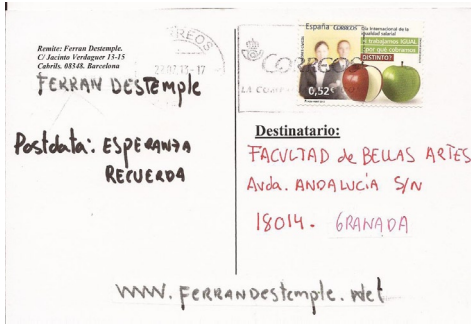 Remite: Ferran Destemple.
C/ Jacinto Verdaguer 13-15
Cabrils. 08348. Barcelona
FERRAN DESTEMPLE
Postdata: ESPERANZA
RECUERDA
España CORREOS
Día Internacional de la
Igualdad salarial
Si trabajamos IGUAL
¿por qué cobramos
DISTINTO?
0,52€
CORREOS
Destinatario:
FACULTAD de BELLAS ARTES
Avda. ANDALUCÍA S/N
18014. GRANADA
www.FERRANDestemple.Net